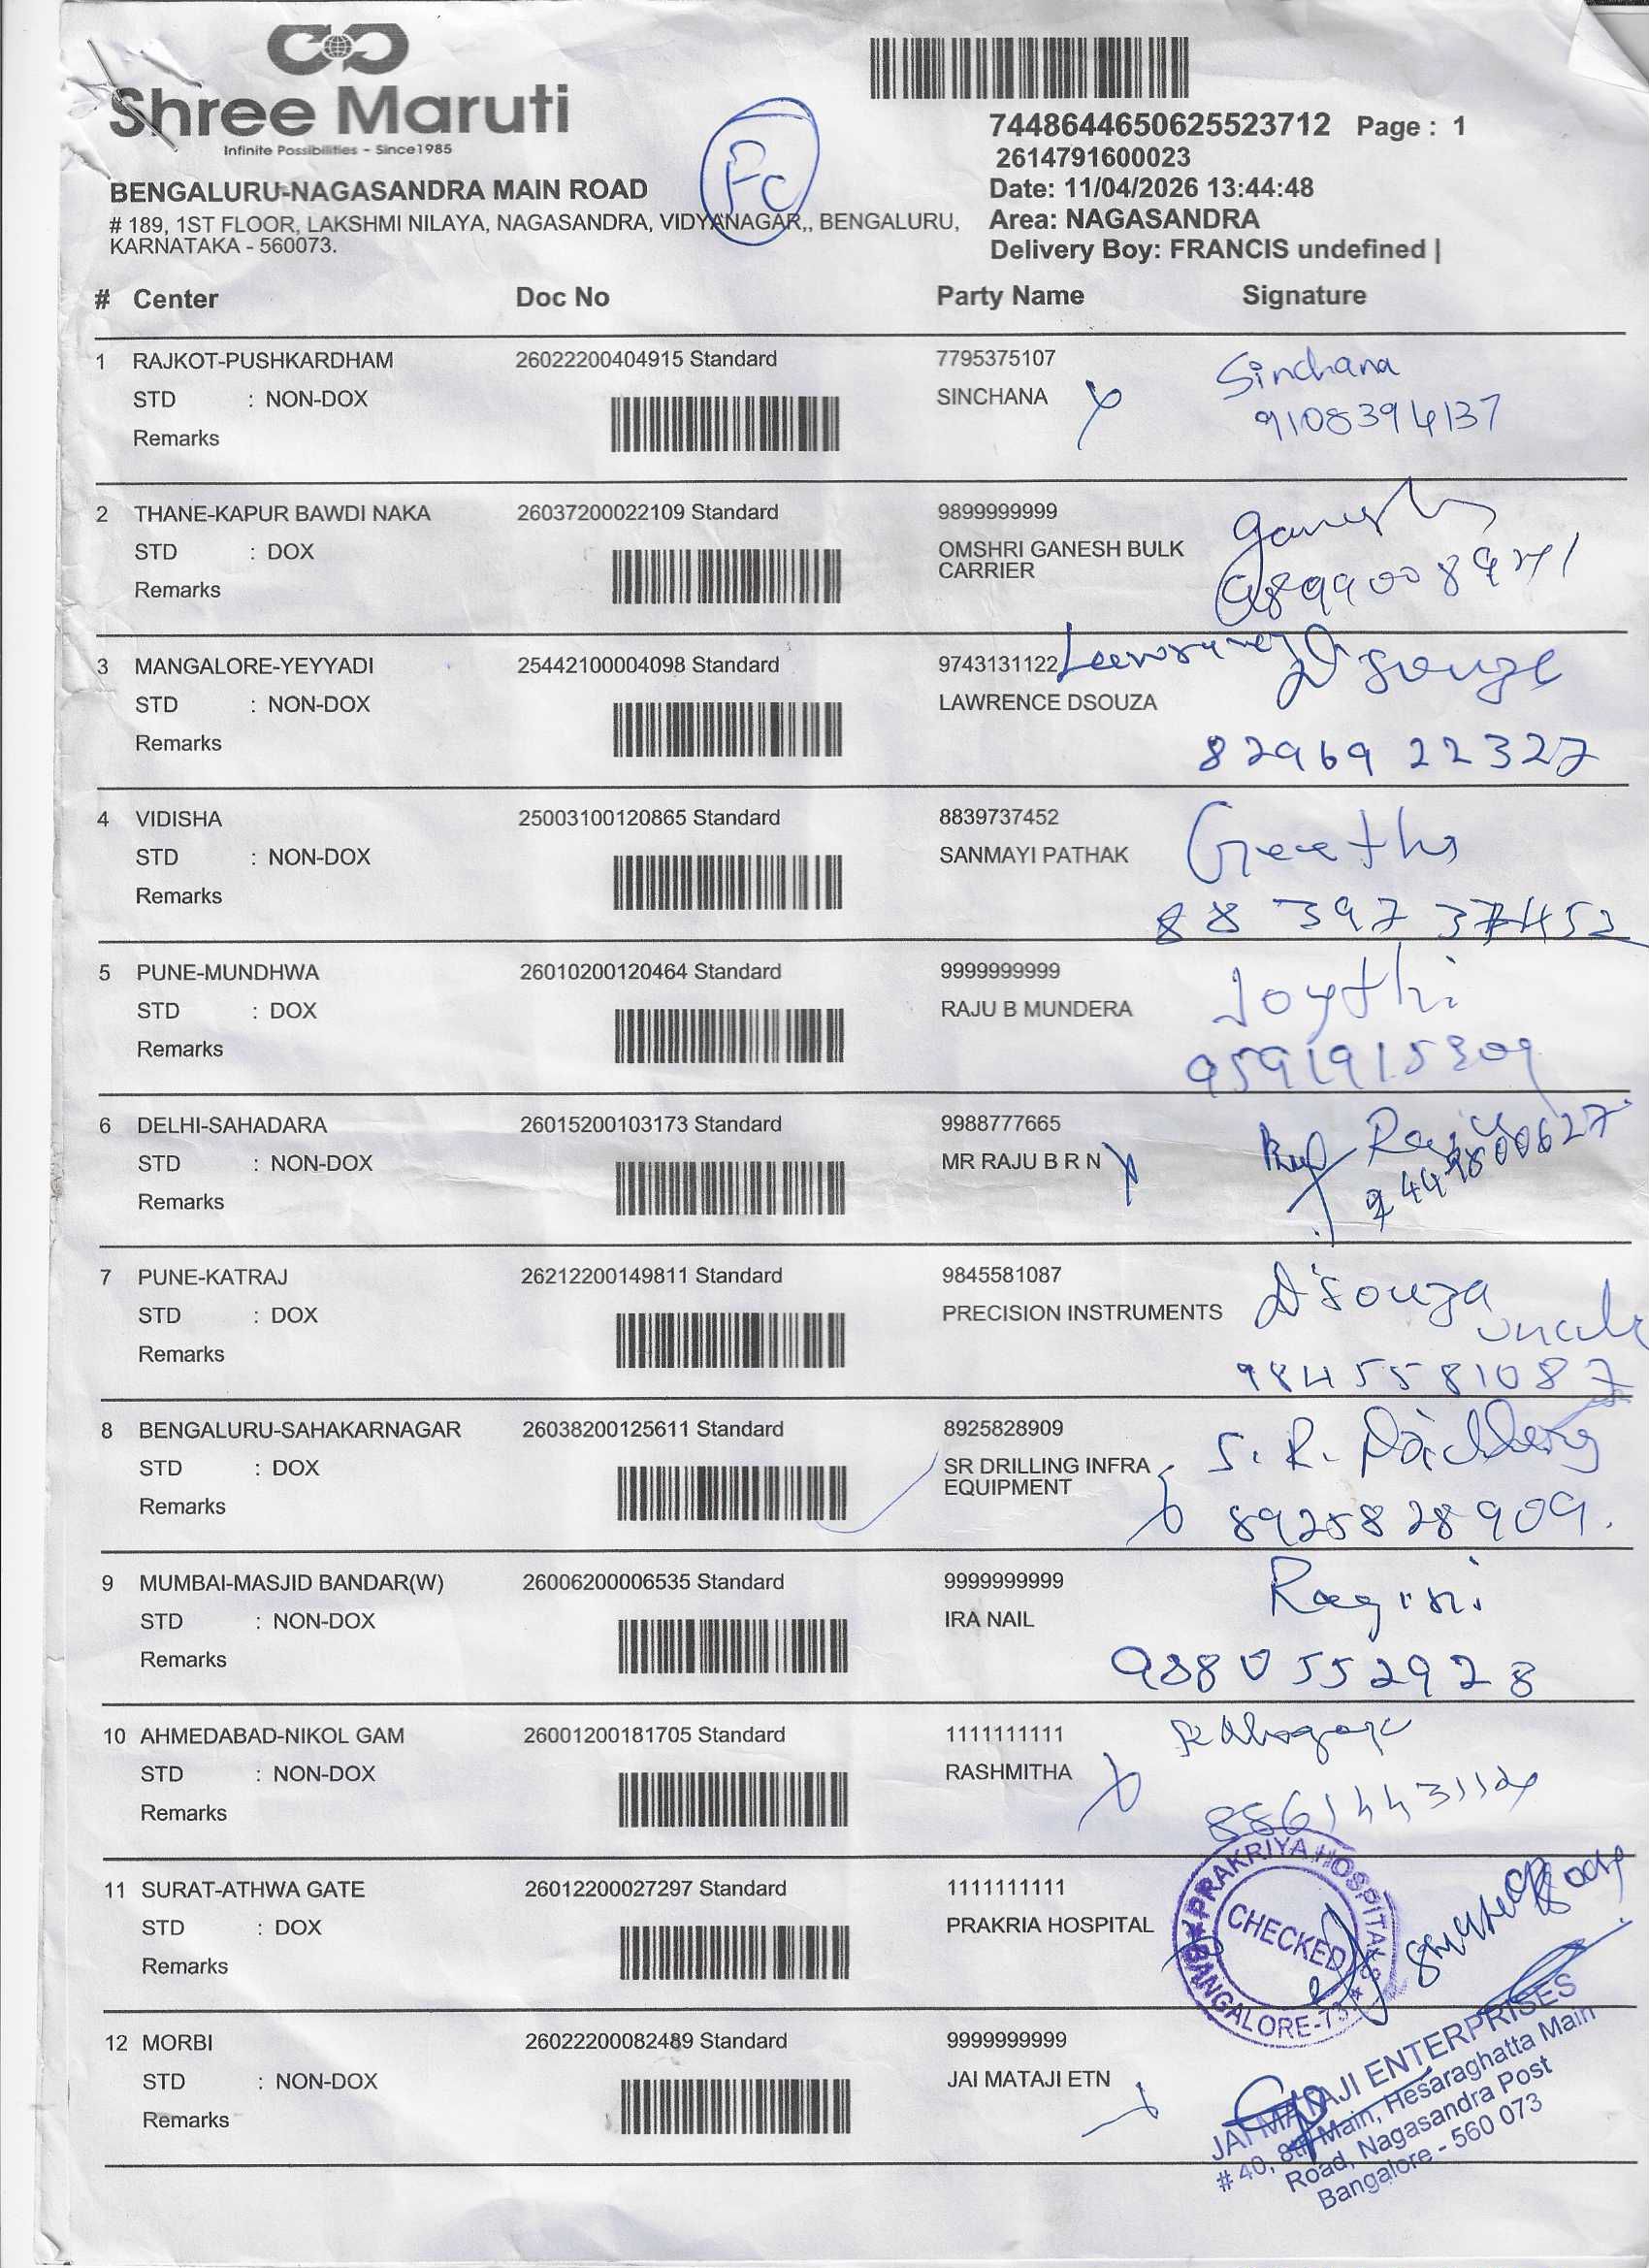 Shree Maruti
Infinite Possibilities - Since1985
7448644650625523712 Page : 1
2614791600023
BENGALURU-NAGASANDRA MAIN ROAD
Date: 11/04/2026 13:44:48
# 189, 1ST FLOOR, LAKSHMI NILAYA, NAGASANDRA, VIDYANAGAR,, BENGALURU,
KARNATAKA - 560073.
Area: NAGASANDRA
Delivery Boy: FRANCIS undefined |
FC
# Center Doc No Party Name Signature
1 RAJKOT-PUSHKARDHAM 26022200404915 Standard 7795375107 Sinchana
STD : NON-DOX SINCHANA 9108394137
Remarks
2 THANE-KAPUR BAWDI NAKA 26037200022109 Standard 9899999999 Ganesh
STD : DOX OMSHRI GANESH BULK
CARRIER
Remarks
3 MANGALORE-YEYYADI 25442100004098 Standard 9743131122 D'souza
STD : NON-DOX LAWRENCE DSOUZA
Remarks 82969 22327
4 VIDISHA 25003100120865 Standard 8839737452 Geetha
STD : NON-DOX SANMAYI PATHAK
Remarks 88 397 37452
5 PUNE-MUNDHWA 26010200120464 Standard 9999999999 Joythi
STD : DOX RAJU B MUNDERA
Remarks 9591915309
6 DELHI-SAHADARA 26015200103173 Standard 9988777665 Raju
STD : NON-DOX MR RAJU B R N
Remarks
7 PUNE-KATRAJ 26212200149811 Standard 9845581087 D'souza
STD : DOX PRECISION INSTRUMENTS uncle
Remarks 9845581087
8 BENGALURU-SAHAKARNAGAR 26038200125611 Standard 8925828909 S. R.
STD : DOX SR DRILLING INFRA
EQUIPMENT
Remarks 8925828909.
9 MUMBAI-MASJID BANDAR(W) 26006200006535 Standard 9999999999 Ragini
STD : NON-DOX IRA NAIL
Remarks 9880552928
10 AHMEDABAD-NIKOL GAM 26001200181705 Standard 1111111111
STD : NON-DOX RASHMITHA
Remarks
11 SURAT-ATHWA GATE 26012200027297 Standard 1111111111
STD : DOX PRAKRIA HOSPITAL
Remarks
PRAKRIYA HOSPITALS
CHECKED
BANGALORE-73
12 MORBI 26022200082489 Standard 9999999999
STD : NON-DOX JAI MATAJI ETN
Remarks
JAI MATAJI ENTERPRISES
# 40, 8th Main, Hesaraghatta Main
Road, Nagasandra Post
Bangalore - 560 073